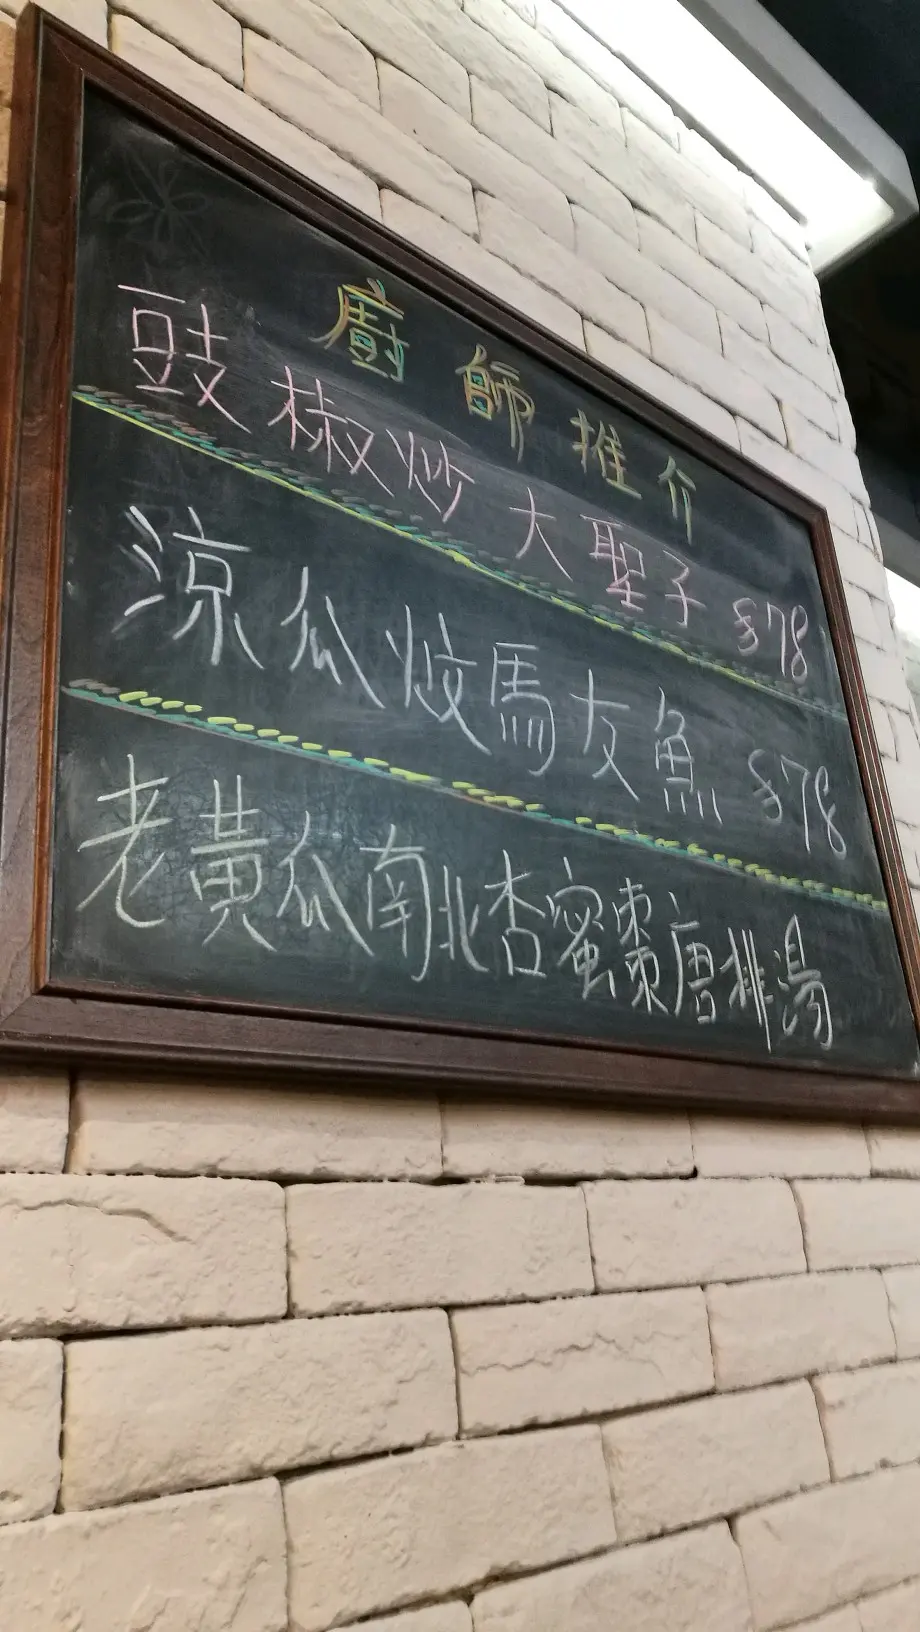 廚師推介
豉椒炒大聖子 $78
涼瓜炆馬友魚 $78
老黃瓜南北杏蜜棗唐排湯